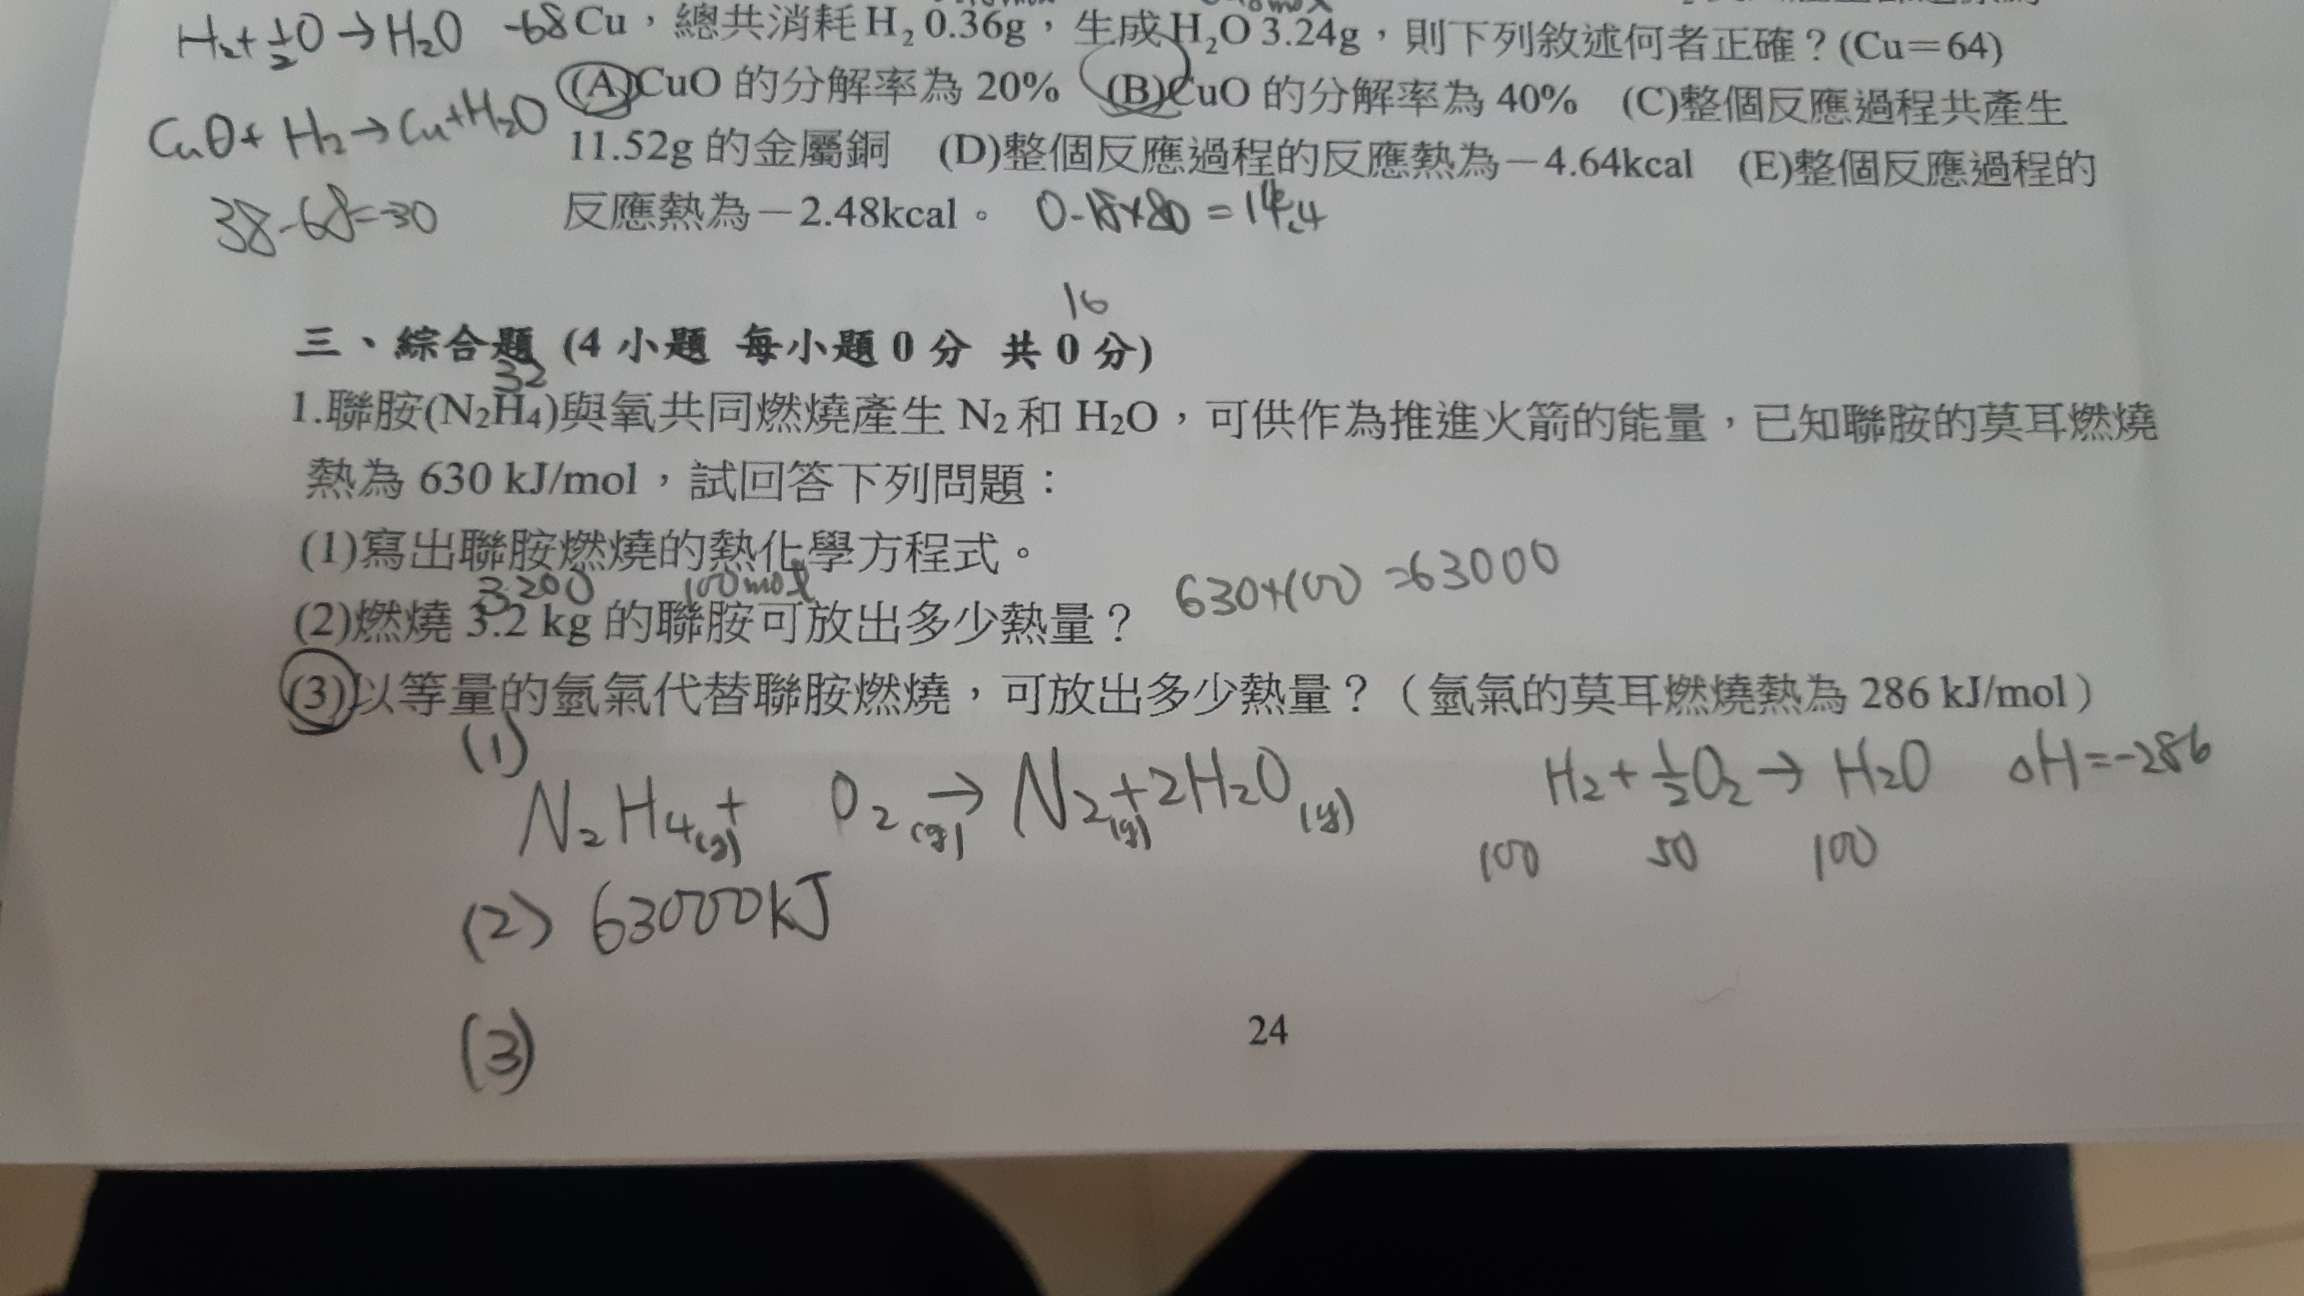 H₂+½O→H₂O -68 Cu，總共消耗 H₂ 0.36g，生成 H₂O 3.24g，則下列敘述何者正確？(Cu＝64)
(A)CuO 的分解率為 20% (B)CuO 的分解率為 40% (C)整個反應過程共產生
CuO+H₂→Cu+H₂O
11.52g 的金屬銅 (D)整個反應過程的反應熱為－4.64kcal (E)整個反應過程的
38-68=-30
反應熱為－2.48kcal。 0.18×80=14.4
16
三、綜合題 (4 小題 每小題 0 分 共 0 分)
32
1.聯胺(N₂H₄)與氧共同燃燒產生 N₂ 和 H₂O，可供作為推進火箭的能量，已知聯胺的莫耳燃燒
熱為 630 kJ/mol，試回答下列問題：
(1)寫出聯胺燃燒的熱化學方程式。
3200 100mol 630×100=63000
(2)燃燒 3.2 kg 的聯胺可放出多少熱量？
(3)以等量的氫氣代替聯胺燃燒，可放出多少熱量？（氫氣的莫耳燃燒熱為 286 kJ/mol）
(1)
N₂H₄(g)+ O₂(g)→N₂(g)+2H₂O(g)
H₂+½O₂→H₂O ΔH=-286
100 50 100
(2) 63000kJ
(3)
24